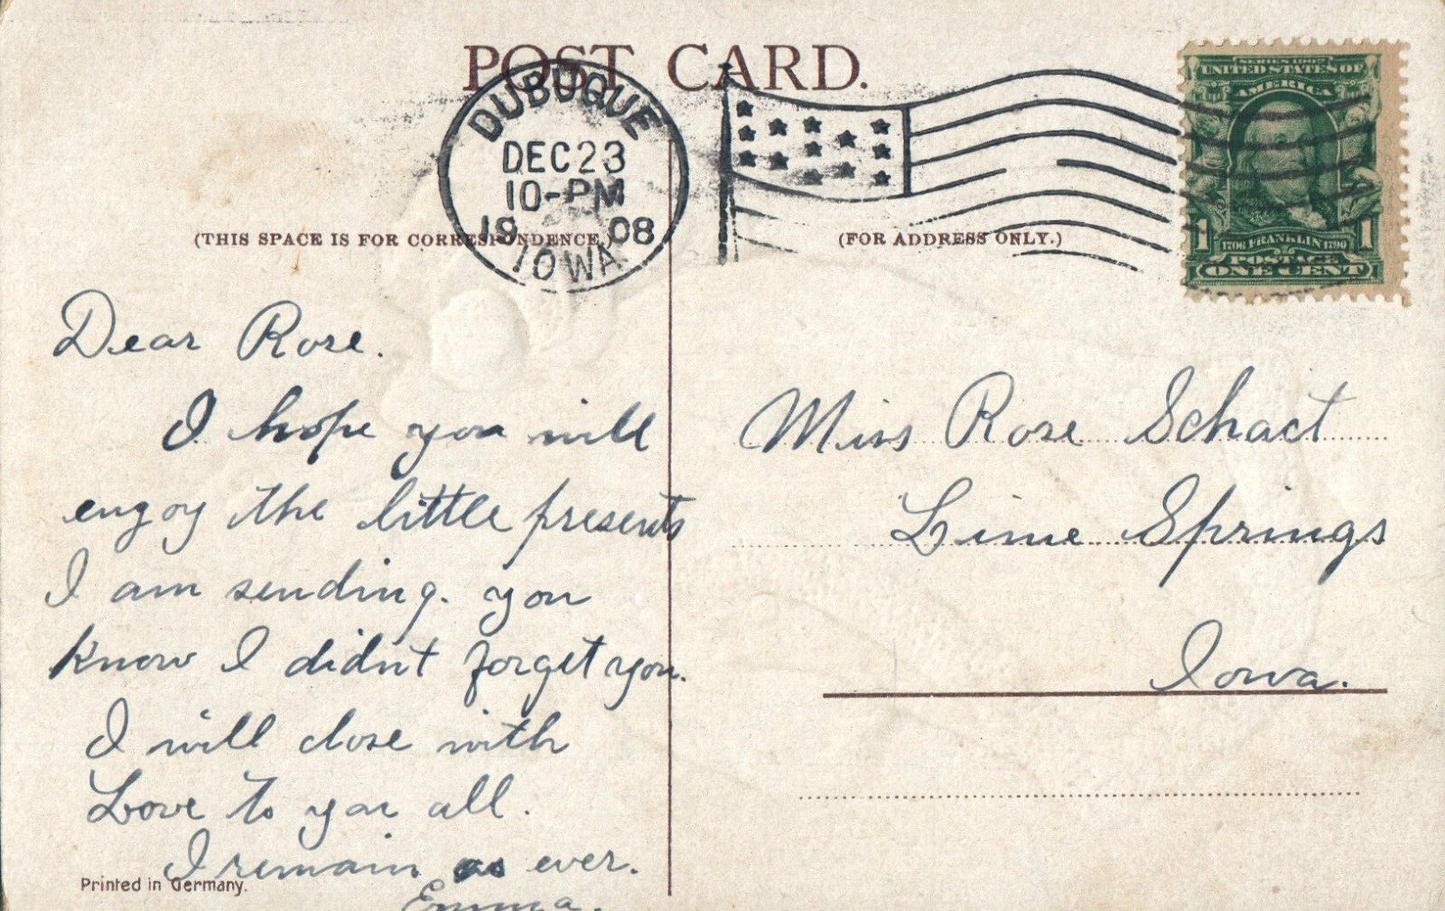 POST CARD.
DUBUQUE
DEC 23
10-PM
1908
IOWA
SERIES 1902
UNITED STATES OF
AMERICA
1 1706 FRANKLIN 1790 1
POSTAGE
ONE CENT
(THIS SPACE IS FOR CORRESPONDENCE.)
(FOR ADDRESS ONLY.)
Dear Rose.
I hope you will
enjoy the little presents
I am sending. you
know I didnt forget you.
I will close with
Love to you all.
I remain as ever.
Emma.
Printed in Germany.
Miss Rose Schact
Lime Springs
Iowa.